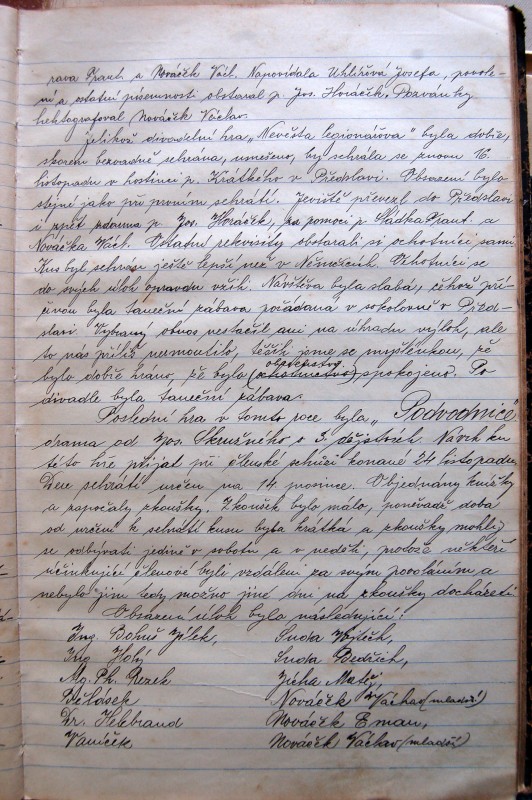 rava Frant. a Nováček Václ. Napovídala Uhlířová Josefa, povole-
ní a ostatní písemnosti obstaral p. Jos. Horáček. Pozvánky
hektografoval Nováček Václav.
Jelikož divadelní hra „Nevěsta legionářova" byla dobře,
skorem bezvadně sehrána, usneseno, by sehrála se znovu 16.
listopadu v hostinci p. Krátkého v Předslavi. Obsazení bylo
stejné jako při prvním sehrátí. Jeviště převezl do Předslavi
i zpět zdarma p. Jos. Horáček, za pomoci p. Sládka Frant. a
Nováčka Václ. Ostatní rekvisity obstarali si ochotníci sami.
Kus byl sehrán ještě lepší než v Němčicích. Ochotníci se
do svých úloh opravdu vžili. Návštěva byla slabá, čehož pří-
činou byla taneční zábava pořádaná v sokolovně v Před-
slavi. Vybraný obnos nestačil ani na úhradu výloh, ale
to nás příliš nermoutilo, těšili jsme se myšlenkou, že
bylo dobře hráno, že byla obecenstvo (ochotnictvo) spokojeno. Po
divadle byla taneční zábava.
Poslední hra v tomto roce byla „Podvodnice"
drama od Jos. Skružného o 3. dějstvích. Návrh ku
této hře přijat při členské schůzi konané 24 listopadu.
Den sehrátí určen na 14 prosince. Objednány knížky
a započaly zkoušky. Zkoušek bylo málo, poněvadž doba
od určení k sehrátí kusu byla krátká a zkoušky mohly
se odbývati jedině v sobotu a v neděli, protože někteří
účinkující členové byli vzdáleni za svým povoláním a
nebylo jim tedy možno jiné dni na zkoušky docházeti.
Obsazení úloh bylo následující:
Ing. Bohuš Jílek, Suda Vojtěch,
Ing. Holý Suda Bedřich,
Mg. Ph. Rezek Zícha Matěj,
Nováček Václav (mladší)
Dr. Helebrand Nováček Eman,
Vaníček Nováček Václav (mladší)